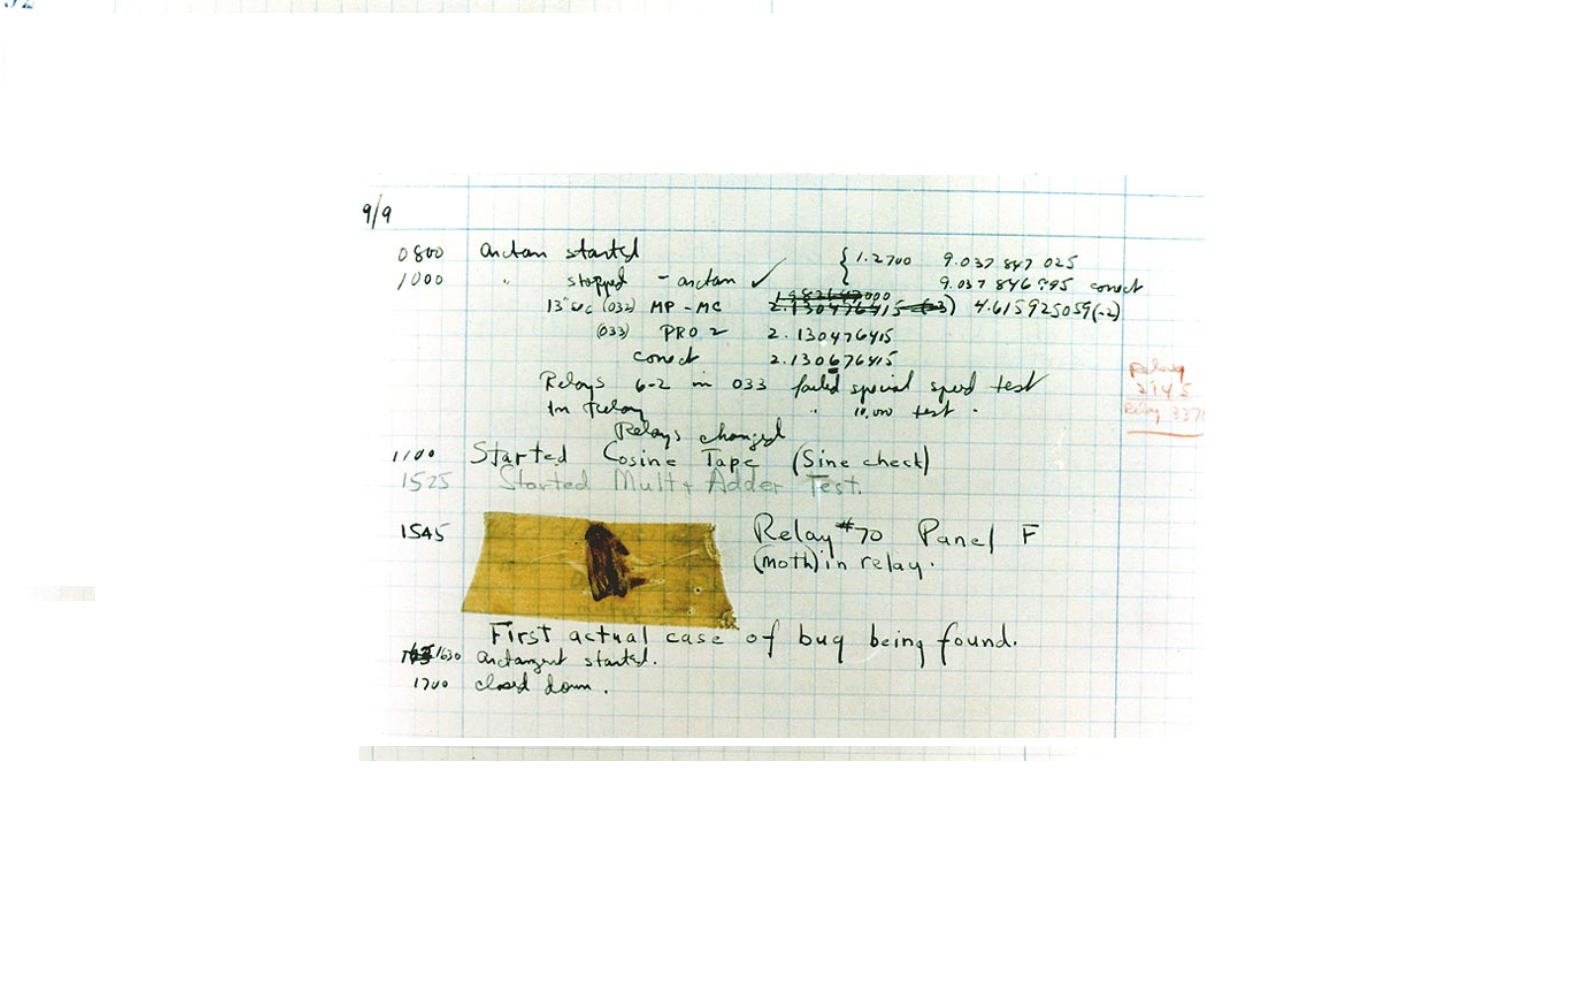 9/9
0800 arctan started { 1.2700 9.037 847 025
1000 " stopped - arctan ✓ 9.037 846 995 correct
13" sec (032) MP - MC 2.130476415 (-3) 4.615925059(-2)
(033) PRO 2 2.130476415
correct 2.130676415
Relays 6-2 in 033 failed special speed test
In Relay " 10,000 test .
Relay
2145
Relay 3370
Relays changed
1100 Started Cosine Tape (Sine check)
1525 Started Mult + Adder Test.
1545 Relay #70 Panel F
(moth) in relay.
First actual case of bug being found.
1630 arctangent started.
1700 closed down.